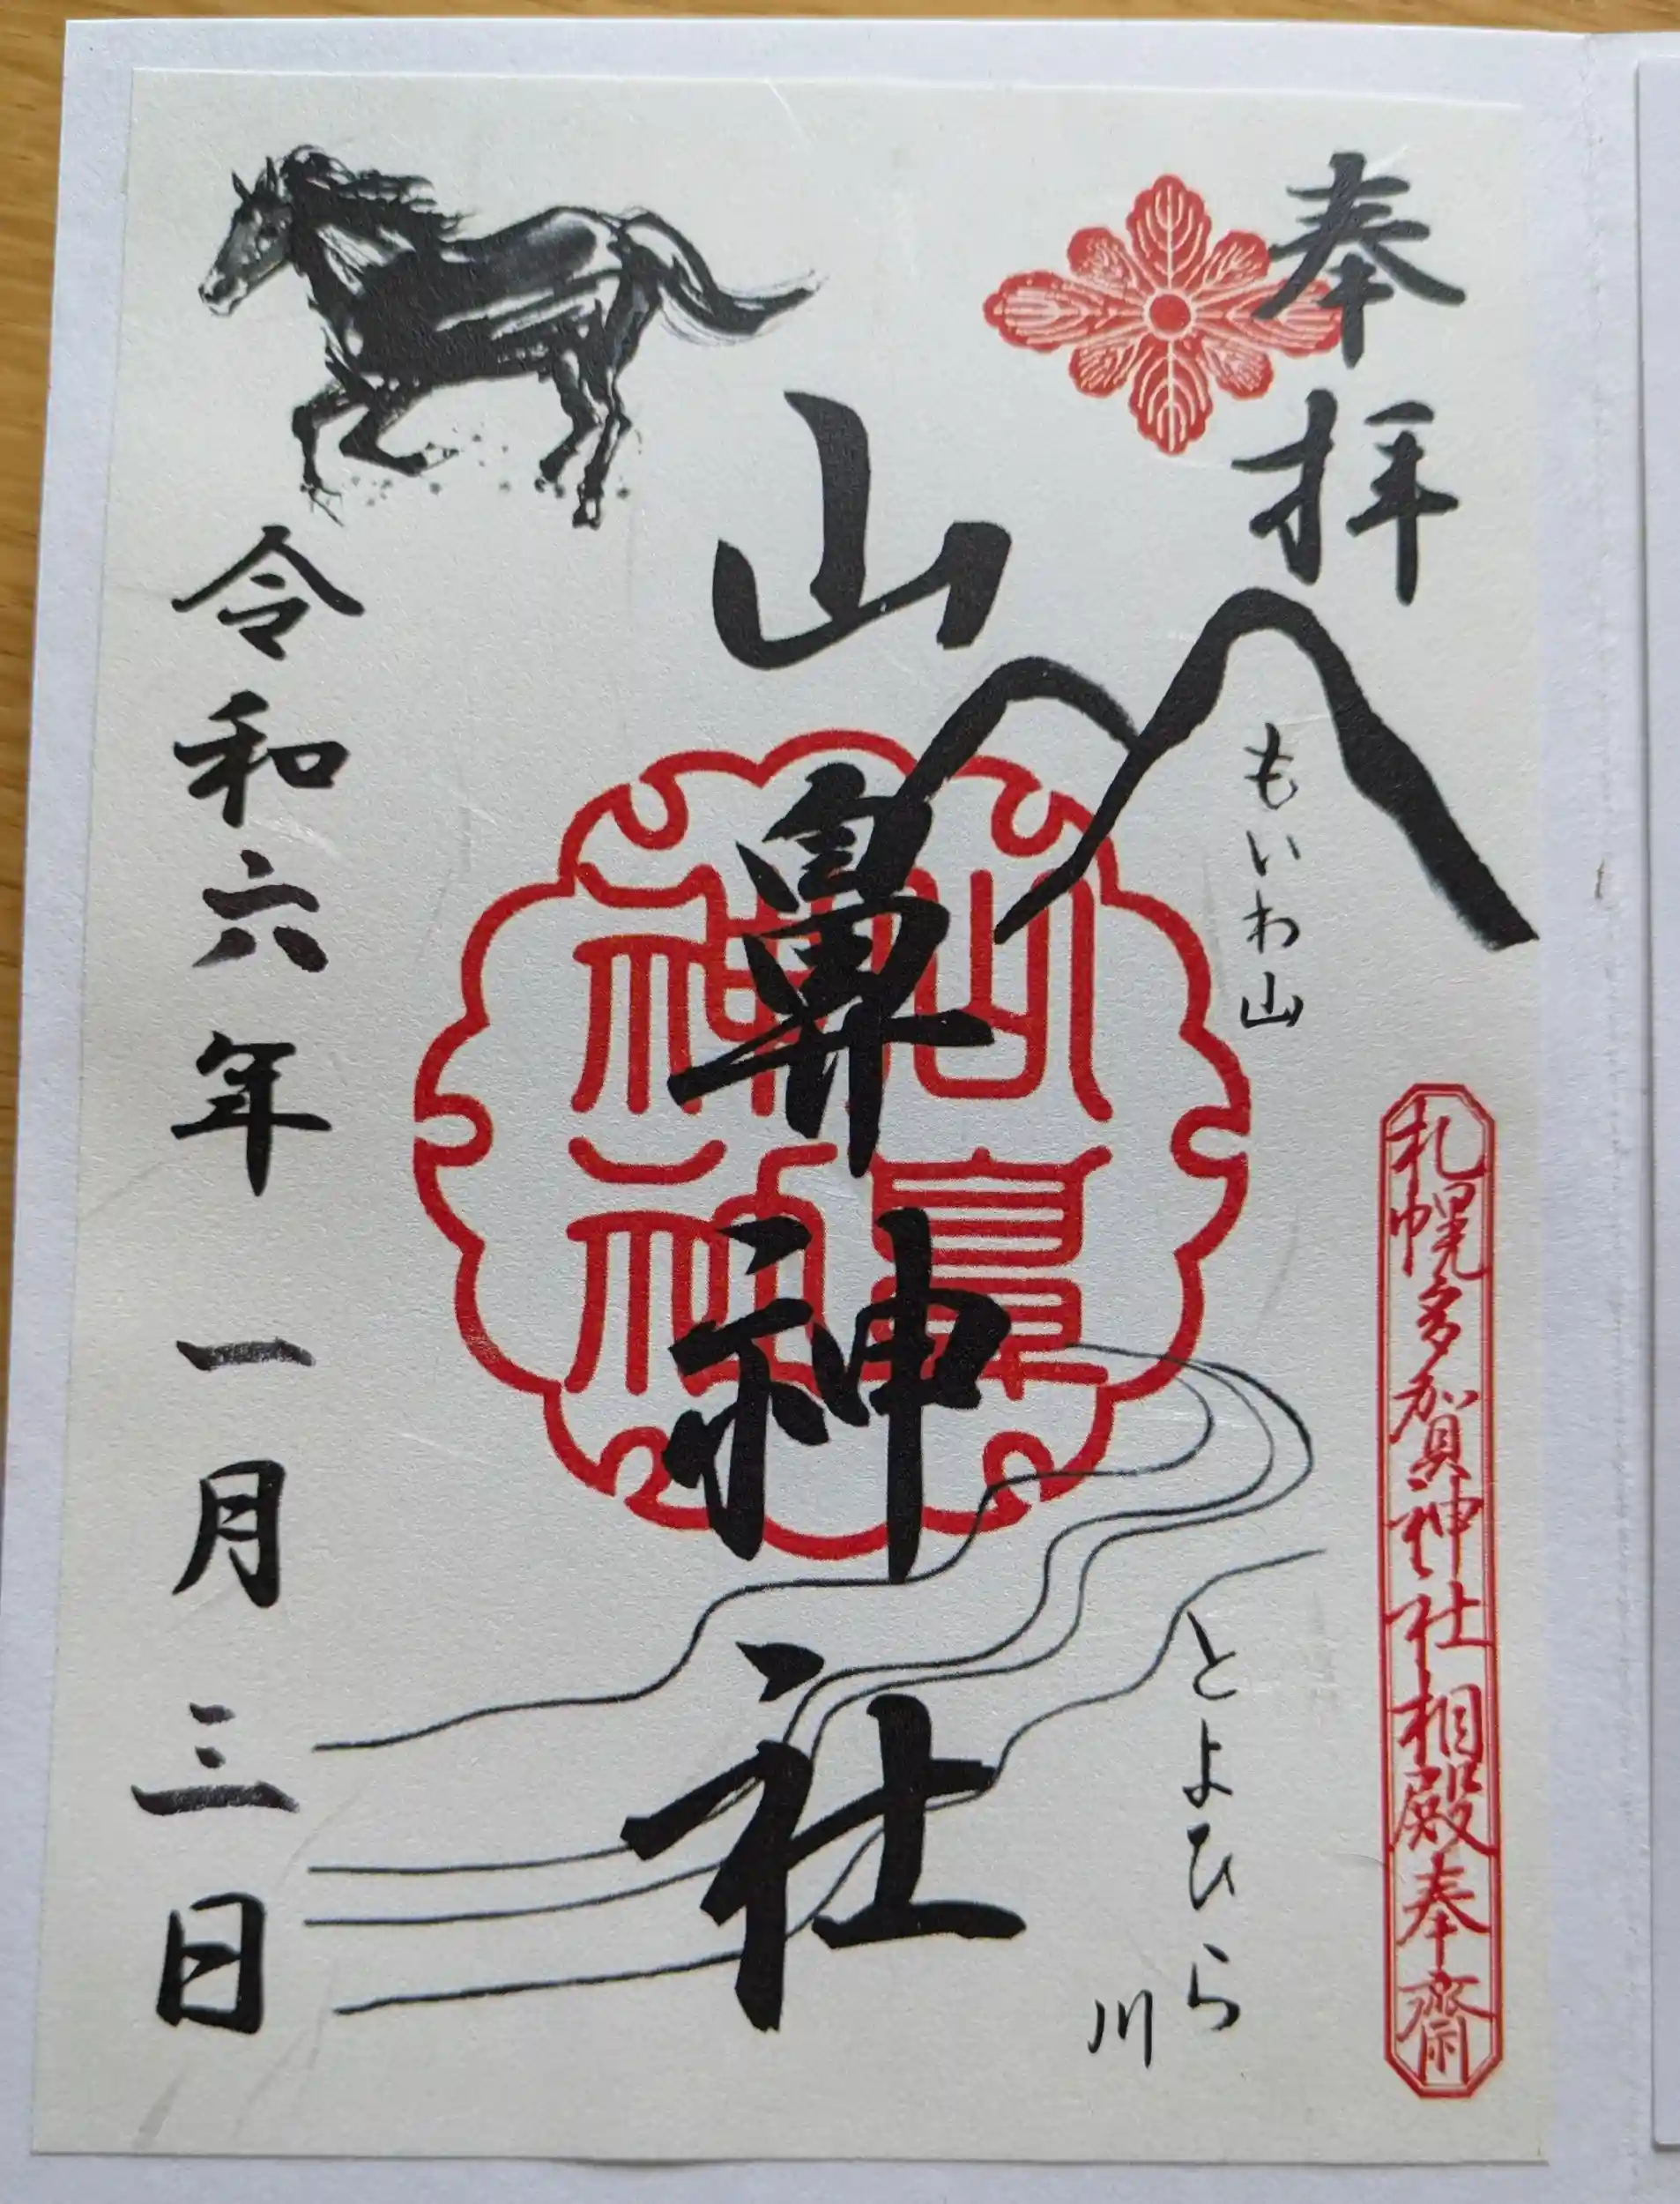 奉拝
もいわ山
札幌多賀神社相殿奉齋
とよひら
川
山鼻神社
山鼻
神社
令和六年一月三日